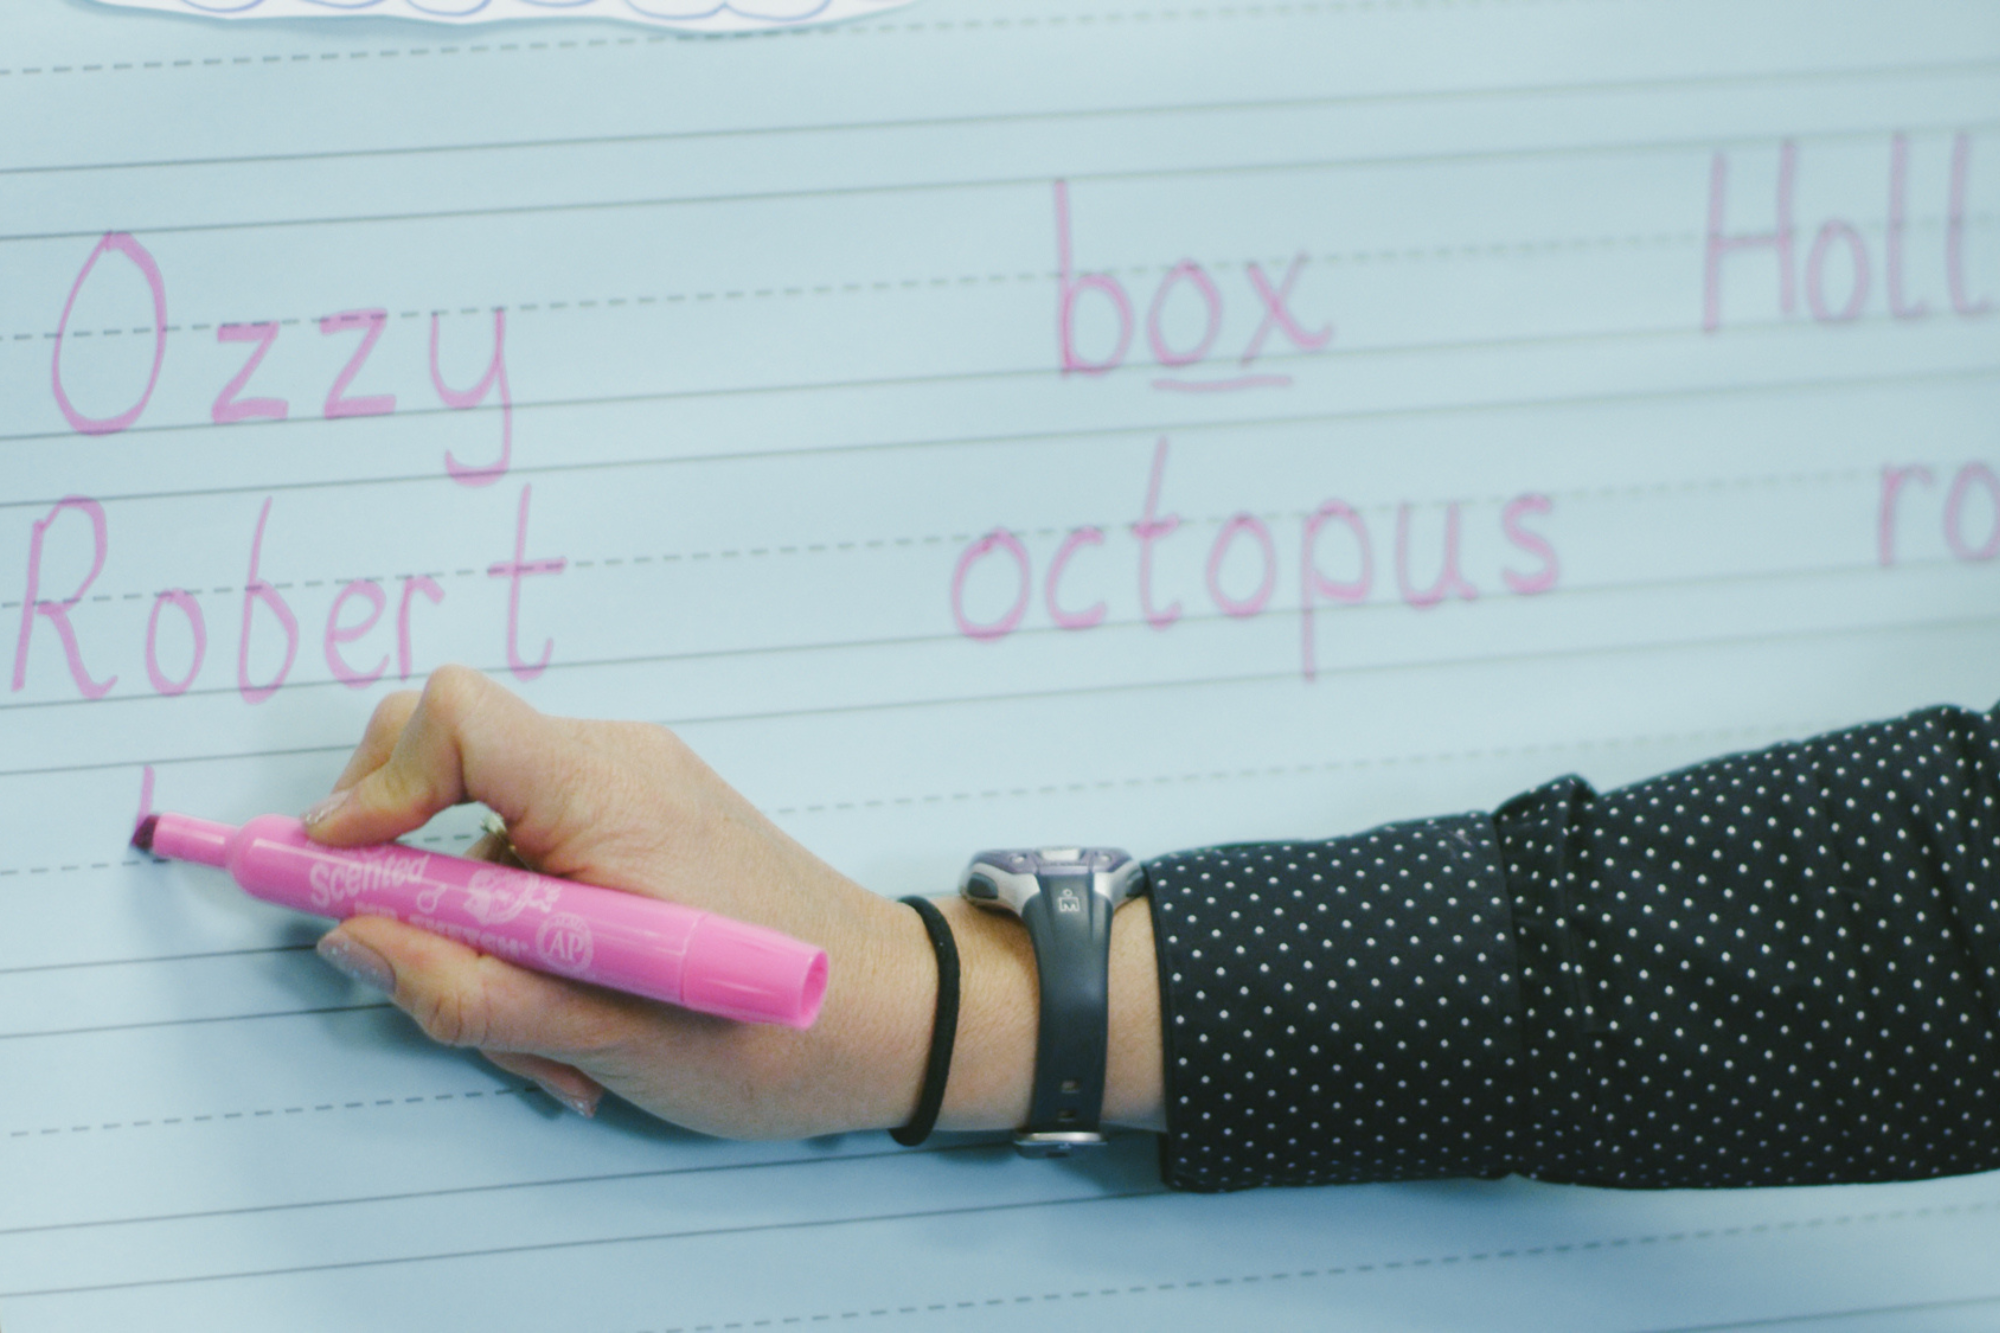 Ozzy box Holl
Robert octopus ro
Scented
MR. SKETCH
AP